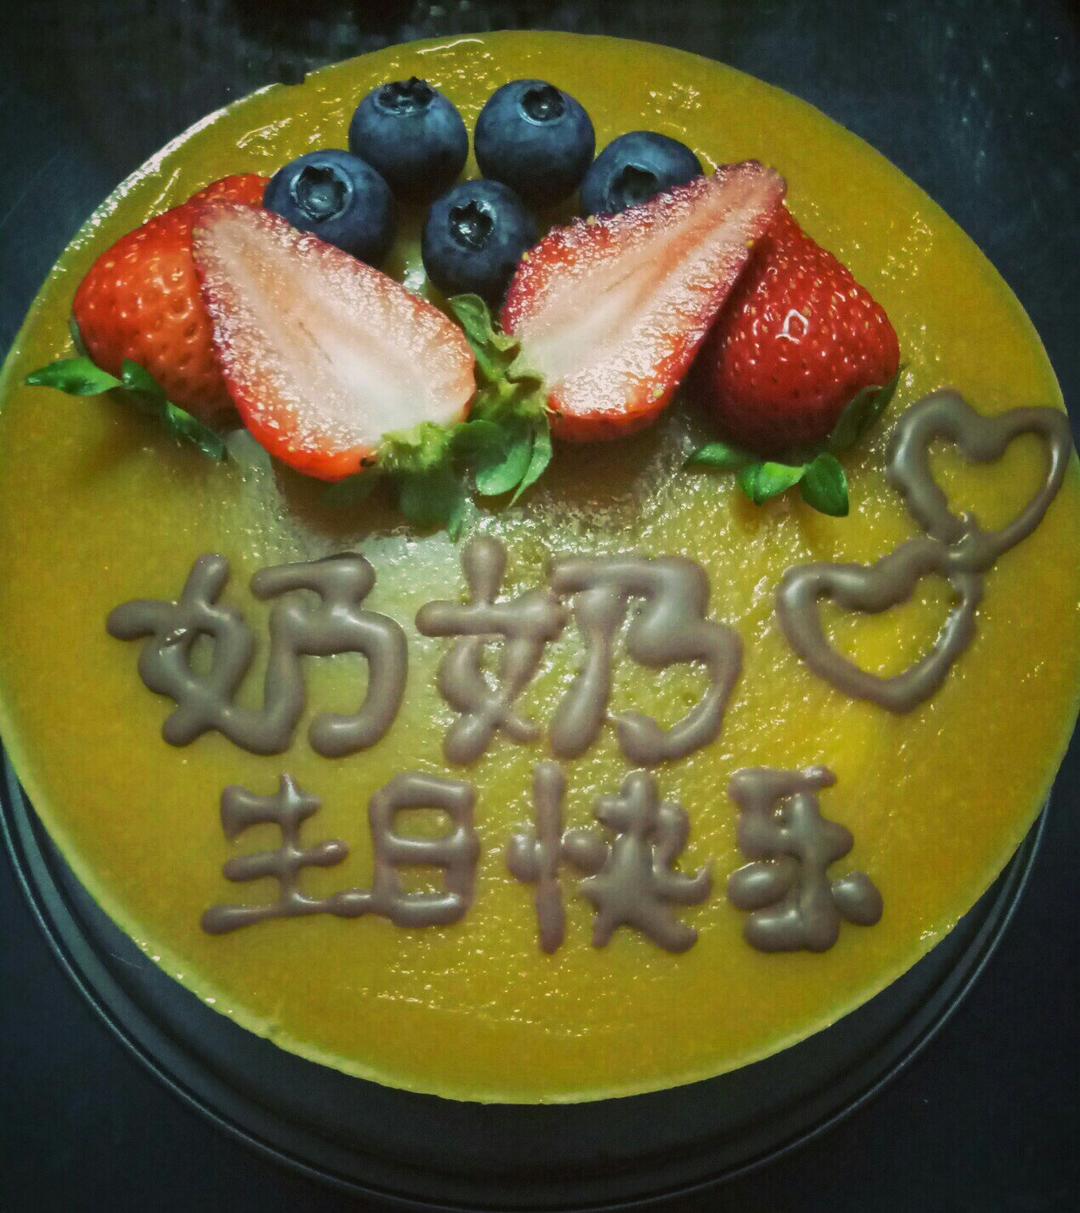 奶奶
生日快乐